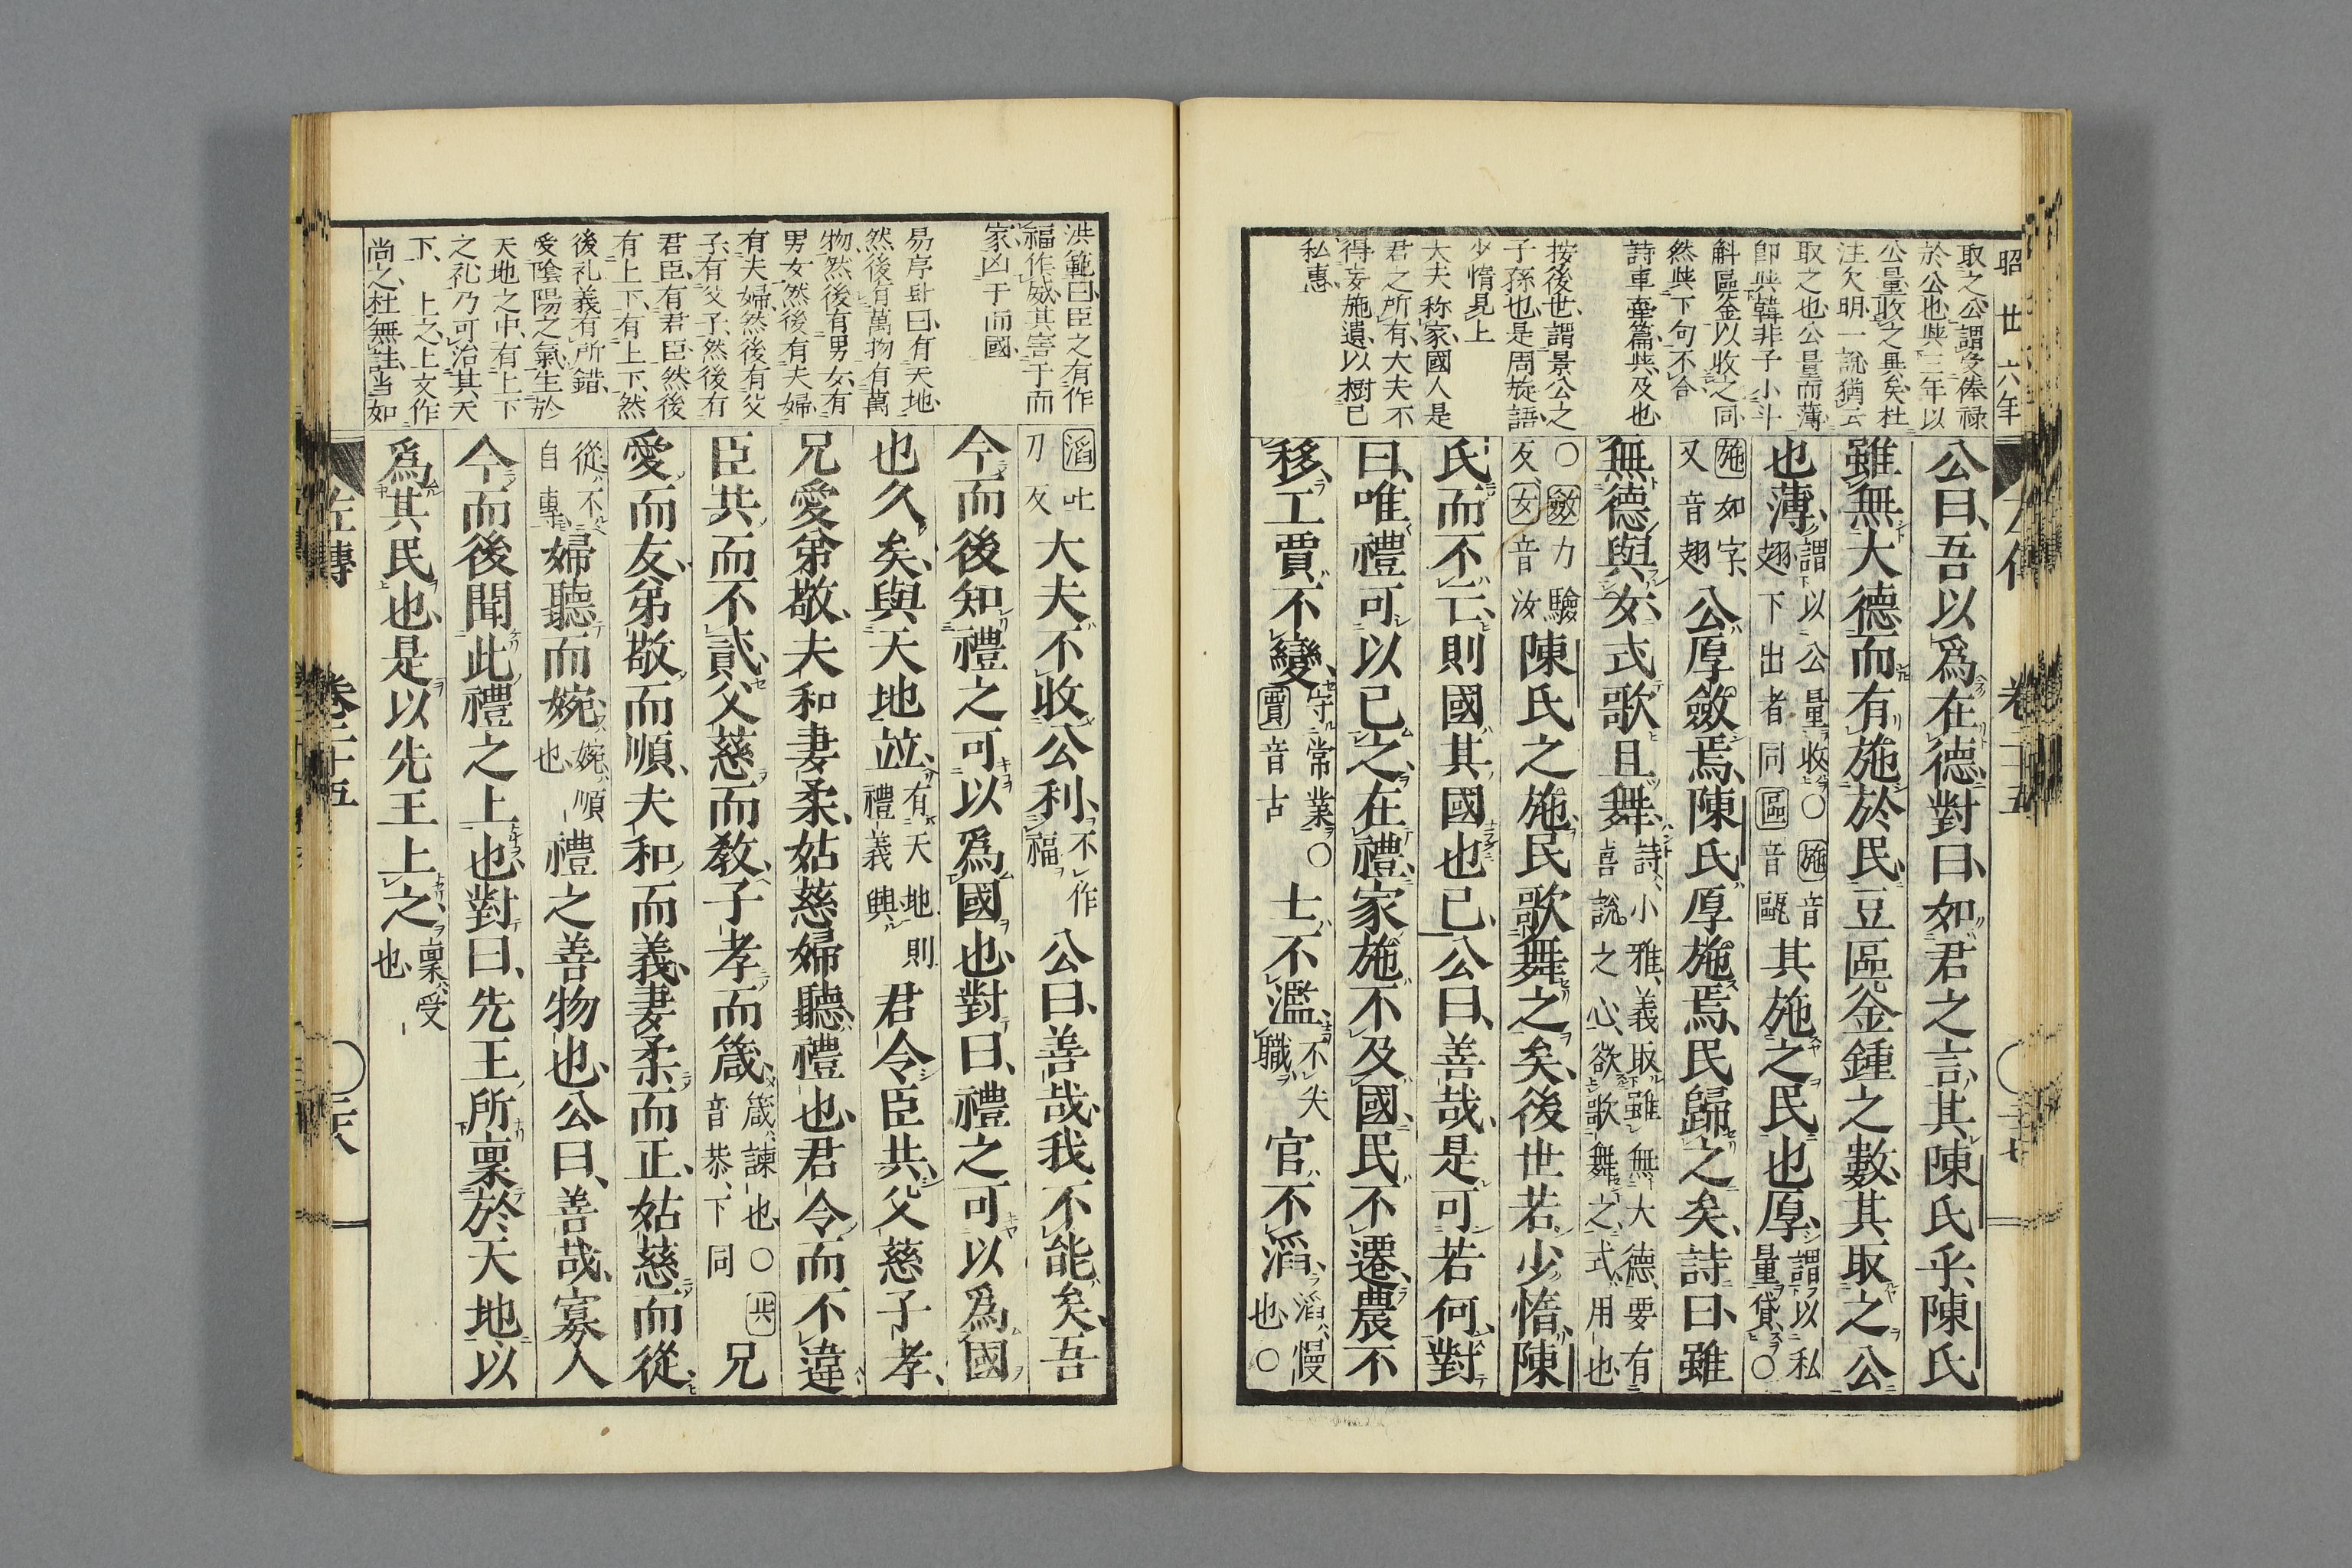 昭廿六年
取之公謂受俸禄
於公也與三年以
公量收之異矣杜
注欠明一說猶云
取之也公量而薄
卽與韓非子小斗
斛區釜以收之同
然與下句不合
詩車舝篇與及也
按後世謂景公之
子孫也是周旋語
少惰見上
大夫称家國人是
君之所有大夫不
得妄施遺以樹己
私惠
公曰吾以爲在德對曰如君之言其陳氏乎陳氏
雖無大德而有施於民豆區釜鍾之數其取之公
也薄謂以公量收〇施音翅下出者同區音甌其施之民也厚謂以私量貸〇
施如字又音翅公厚斂焉陳氏厚施焉民歸之矣詩曰雖
無德與女式歌且舞詩小雅義取雖無大德要有喜說之心欲歌舞之式用也
〇斂力驗反女音汝陳氏之施民歌舞之矣後世若少惰陳
氏而不亡則國其國也已公曰善哉是可若何對
曰唯禮可以已之在禮家施不及國民不遷農不
移工賈不變守常業〇賈音古士不濫不失職官不滔滔慢也〇
洪範曰臣之有作
福作威其害于而
家凶于而國
易序卦曰有天地
然後有萬物有萬
物然後有男女有
男女然後有夫婦
有夫婦然後有父
子有父子然後有
君臣有君臣然後
有上下有上下然
後礼義有所錯
愛陰陽之氣生於
天地之中有上下
之礼乃可治其天
下
上之上文作
尚之杜無註当如
滔吐刀反大夫不收公利不作福公曰善哉我不能矣吾
今而後知禮之可以爲國也對曰禮之可以爲國
也久矣與天地竝有天地則禮義興君令臣共父慈子孝
兄愛弟敬夫和妻柔姑慈婦聽禮也君令而不違
臣共而不貳父慈而教子孝而箴箴諫也〇共音恭下同兄
愛而友弟敬而順夫和而義妻柔而正姑慈而從
從不自專婦聽而婉婉順也禮之善物也公曰善哉寡人
今而後聞此禮之上也對曰先王所稟於天地以
爲其民也是以先王上之稟受也
左傳 卷二十五 〇 二十八